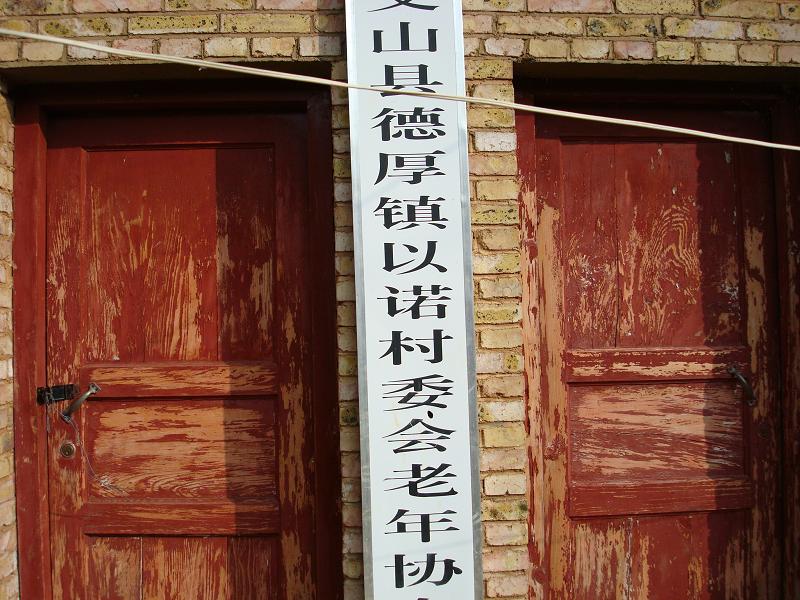 文山县德厚镇以诺村委会老年协